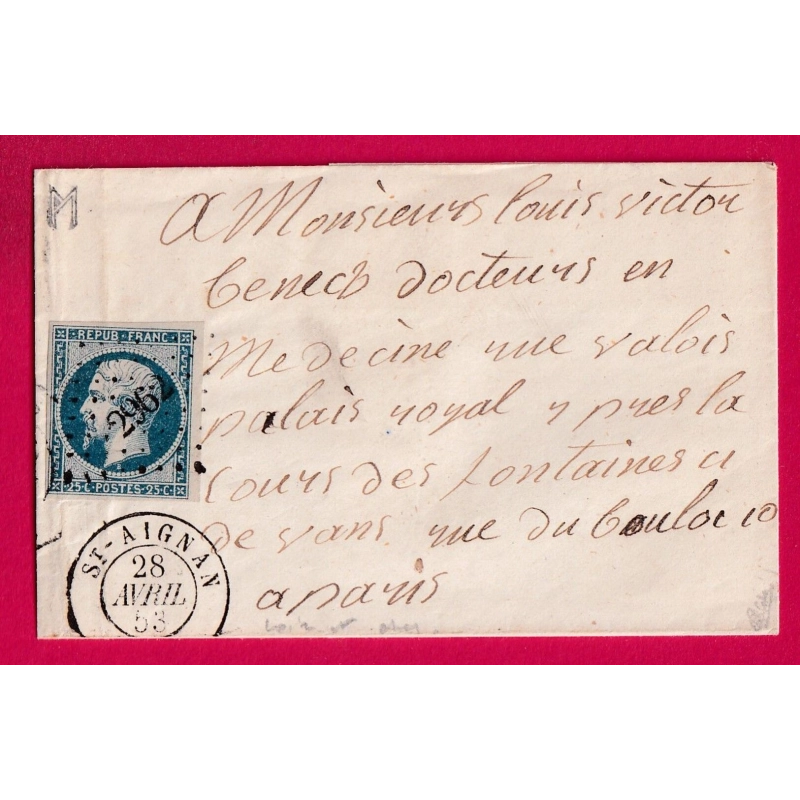 M
A Monsieurs louis victor
benech docteurs en
Medecine rue valois
palais royal n pres la
cours des fontaines ci
devans rue du bouloi 10
a paris
REPUB. FRANC.
2962
25·C·POSTES·25·C·
ST-AIGNAN
28
AVRIL
53